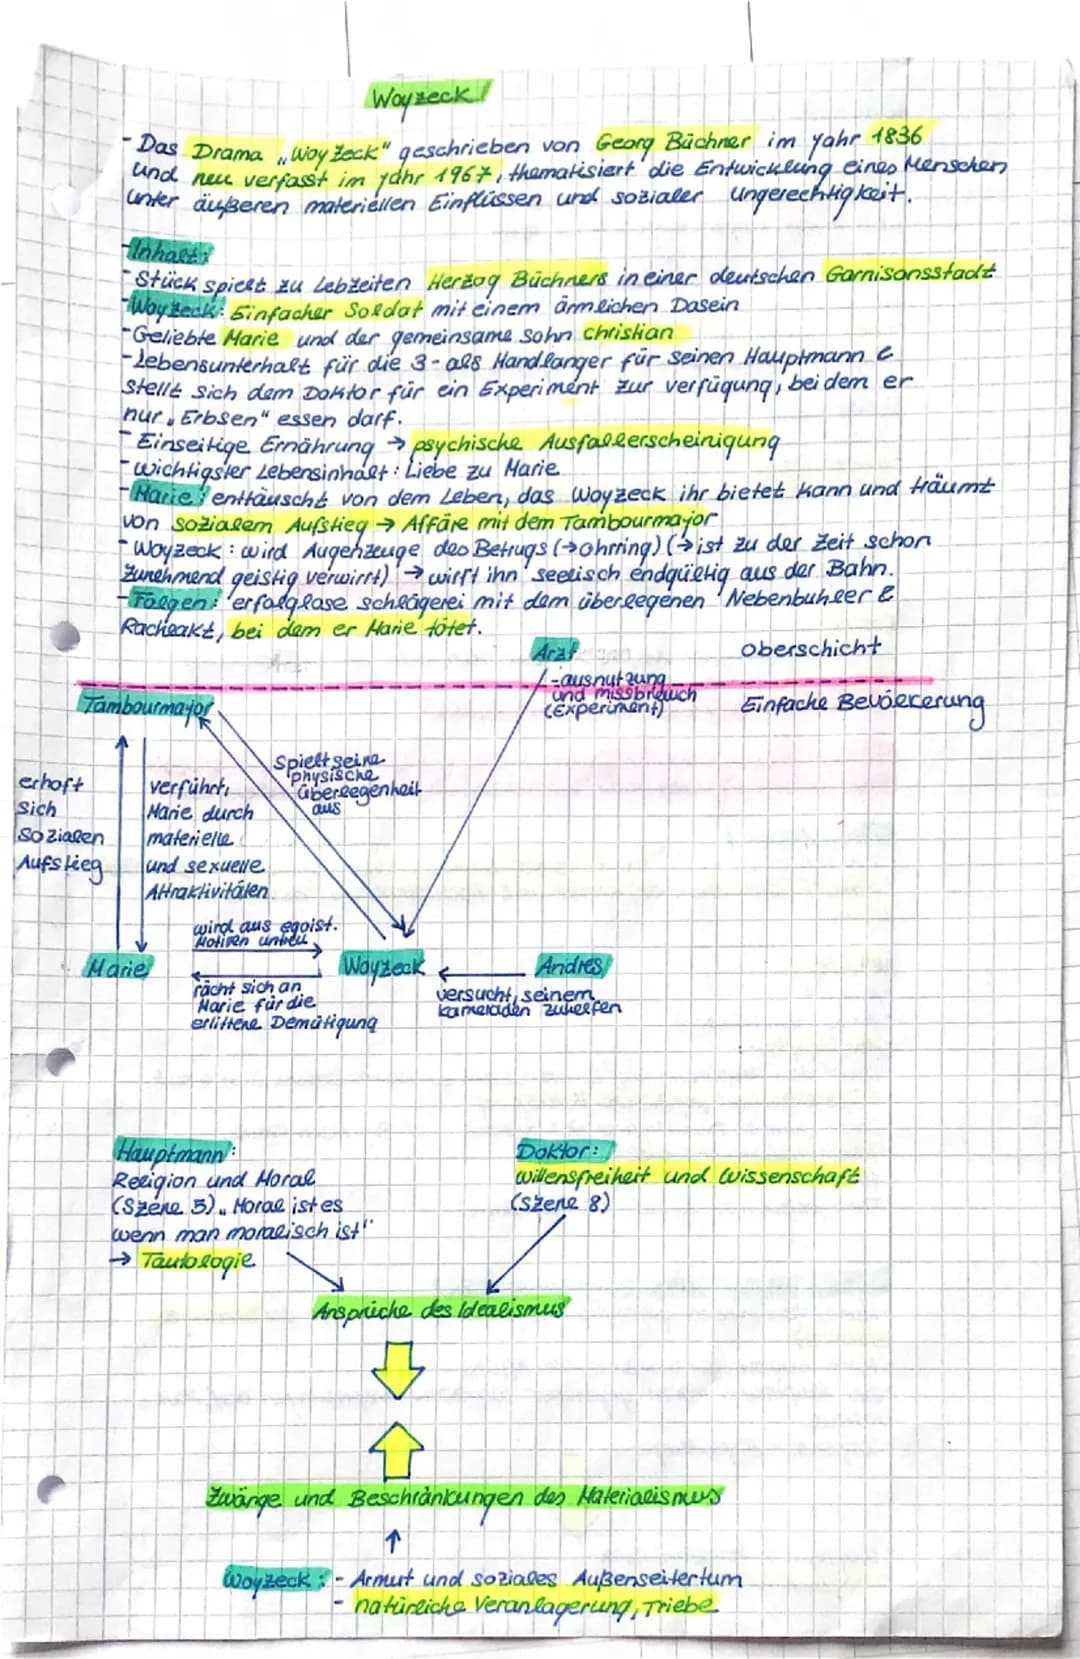 Woyzeck!
- Das Drama „Woyzeck" geschrieben von Georg Büchner im Jahr 1836
und neu verfasst im Jahr 1967, thematisiert die Entwicklung eines Menschen
unter äußeren materiellen Einflüssen und sozialer Ungerechtigkeit.
- Inhalt:
- Stück spielt zu Lebzeiten Herzog Büchners in einer deutschen Garnisonsstadt
- Woyzeck: Einfacher Soldat mit einem ärmlichen Dasein
- Geliebte Marie und der gemeinsame Sohn Christian
- Lebensunterhalt für die 3 - als Handlanger für seinen Hauptmann &
stellt sich dem Doktor für ein Experiment zur verfügung, bei dem er
nur „Erbsen" essen darf.
- Einseitige Ernährung → psychische Ausfallerscheinigung
- wichtigster Lebensinhalt: Liebe zu Marie
- Marie: enttäuscht von dem Leben, das Woyzeck ihr bietet kann und träumt
von sozialem Aufstieg → Affäre mit dem Tambourmajor
- Woyzeck: wird Augenzeuge des Betrugs (→ohrring) (→ist zu der Zeit schon
zunehmend geistig verwirrt) → wirft ihn seelisch endgültig aus der Bahn.
- Folgen: erfolglose schlägerei mit dem überlegenen Nebenbuhler &
Racheakt, bei dem er Marie tötet.
Arzt
Oberschicht
- ausnutzung
und missbrauch
(Experiment)
Tambourmajor
Einfache Bevölkerung
erhoft
sich
sozialen
Aufstieg
verführt,
Marie durch
materielle
und sexuelle
Attraktivitäten
Spielt seine
physische
überlegenheit
aus
wird aus egoist.
Motiven untreu
Marie
Woyzeck
Andres
rächt sich an
Marie für die
erlittene Demütigung
versucht, seinem
kameraden zuhelfen
Hauptmann:
Religion und Moral
(Szene 5) „Moral ist es
wenn man moralisch ist"
→ Tautologie
Doktor:
willensfreiheit und Wissenschaft
(Szene 8)
Ansprüche des Idealismus
Zwänge und Beschränkungen des Materialismus
Woyzeck: - Armut und soziales Außenseitertum
- natürliche Veranlagerung, Triebe